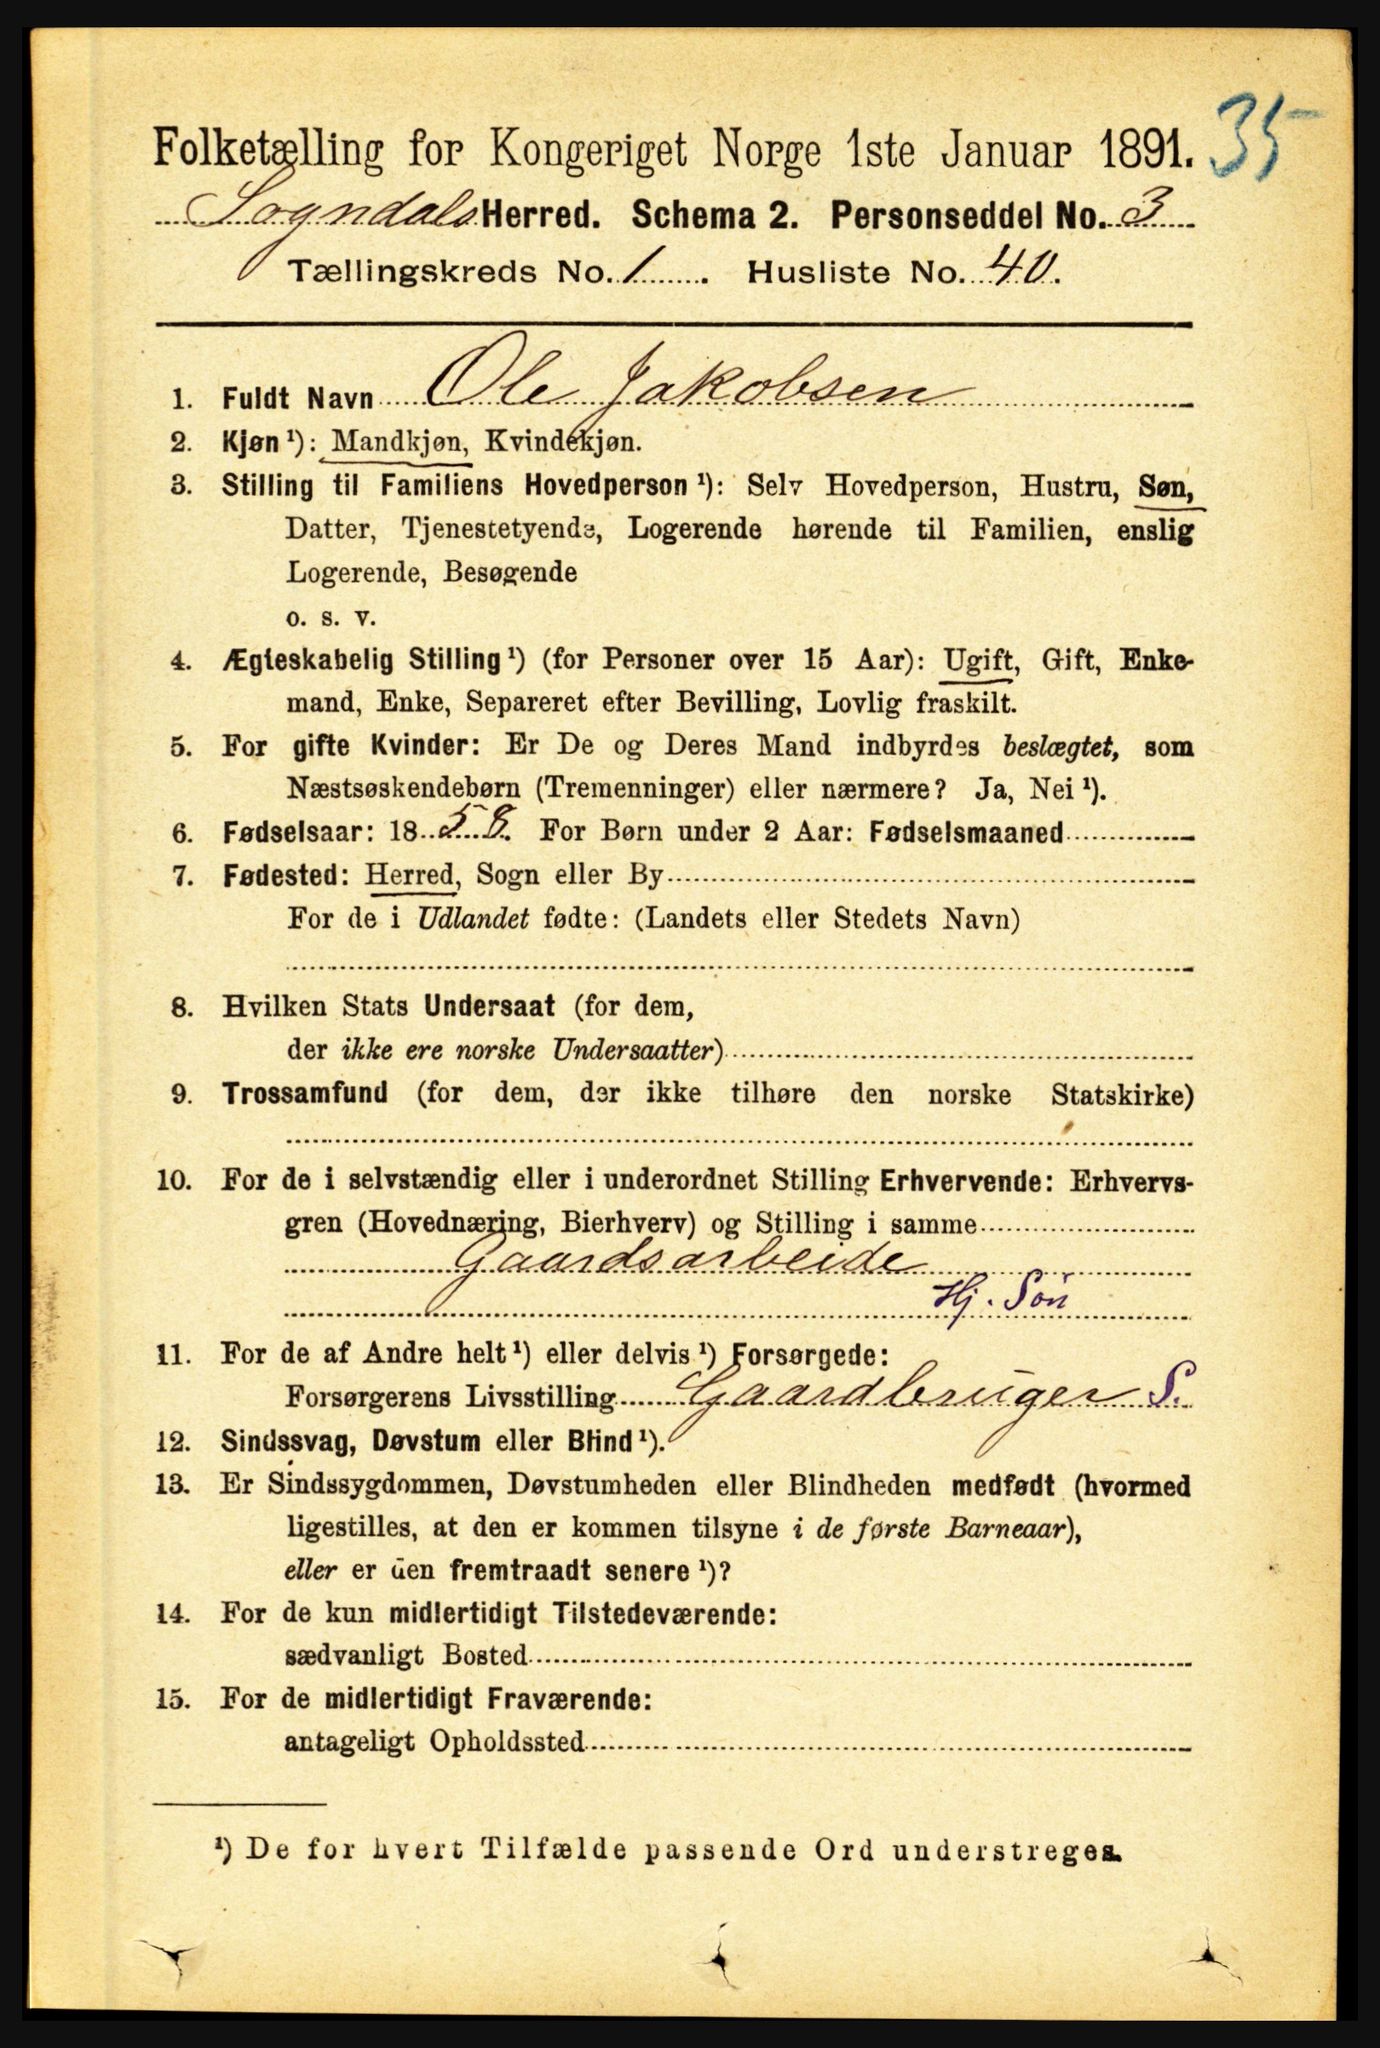 35
Folketælling for Kongeriget Norge 1ste Januar 1891.
Sogndals Herred. Schema 2. Personseddel No. 3
Tællingskreds No. 1. Husliste No. 40.
1. Fuldt Navn Ole Jakobsen
2. Kjøn ¹): Mandkjøn, Kvindekjøn.
3. Stilling til Familiens Hovedperson ¹): Selv Hovedperson, Hustru, Søn,
Datter, Tjenestetyende, Logerende hørende til Familien, enslig
Logerende, Besøgende
o. s. v.
4. Ægteskabelig Stilling ¹) (for Personer over 15 Aar): Ugift, Gift, Enke-
mand, Enke, Separeret efter Bevilling, Lovlig fraskilt.
5. For gifte Kvinder: Er De og Deres Mand indbyrdes beslægtet, som
Næstsøskendebørn (Tremenninger) eller nærmere? Ja, Nei ¹).
6. Fødselsaar: 1858. For Børn under 2 Aar: Fødselsmaaned
7. Fødested: Herred, Sogn eller By
For de i Udlandet fødte: (Landets eller Stedets Navn)
8. Hvilken Stats Undersaat (for dem,
der ikke ere norske Undersaatter)
9. Trossamfund (for dem, der ikke tilhøre den norske Statskirke)
10. For de i selvstændig eller i underordnet Stilling Erhvervende: Erhvervs-
gren (Hovednæring, Bierhverv) og Stilling i samme
Gaardsarbeide
Hj. Søn
11. For de af Andre helt ¹) eller delvis ¹) Forsørgede:
Forsørgerens Livsstilling Gaardbruger S.
12. Sindssvag, Døvstum eller Blind ¹).
13. Er Sindssygdommen, Døvstumheden eller Blindheden medfødt (hvormed
ligestilles, at den er kommen tilsyne i de første Barneaar),
eller er den fremtraadt senere ¹)?
14. For de kun midlertidigt Tilstedeværende:
sædvanligt Bosted
15. For de midlertidigt Fraværende:
antageligt Opholdssted
¹) De for hvert Tilfælde passende Ord understreges.